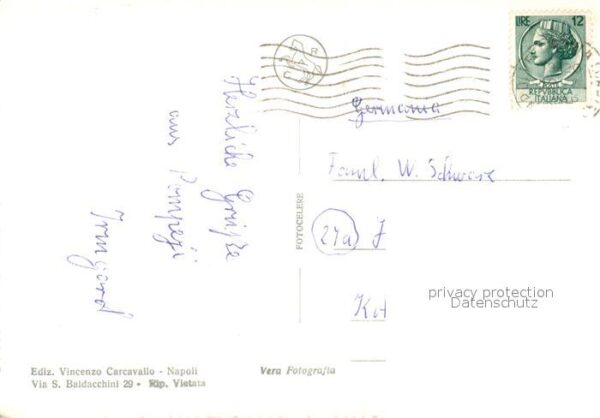 LIRE 12
REPVBBLICA
ITALIANA
R
A
C
Herzliche Grüße
aus Pompeji
Irmgard
FOTOCELERE
Germania
Faml. W. Schware
(21a) J
Kat
privacy protection
Datenschutz
Ediz. Vincenzo Carcavallo - Napoli
Via S. Baldacchini 29 - Rip. Vietata
Vera Fotografia